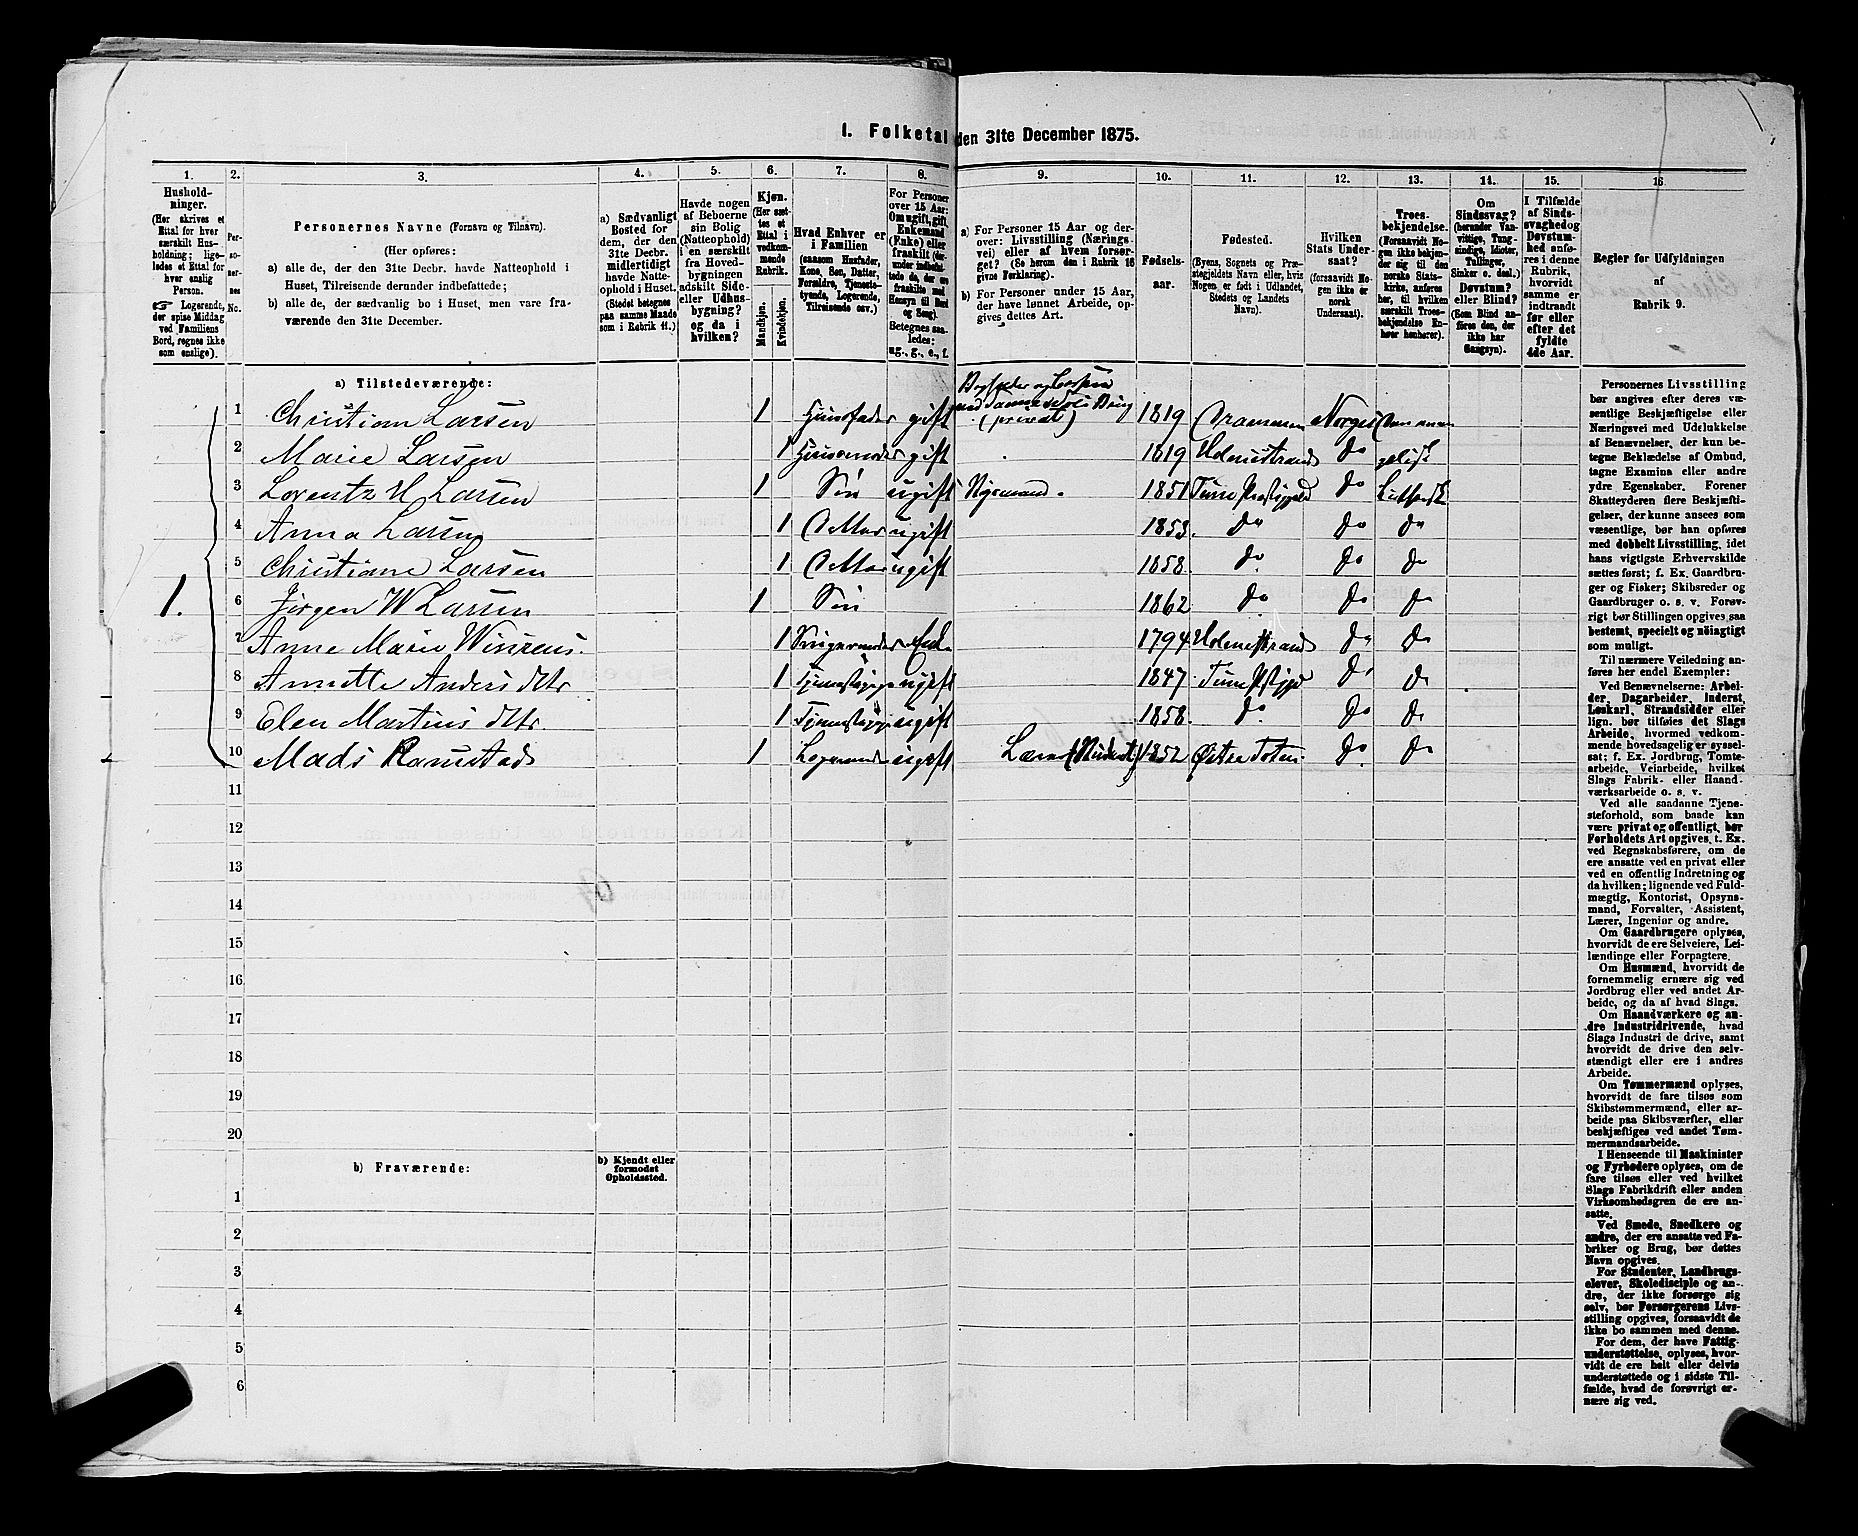 1. Folketal den 31te December 1875.
1. 2. 3. 4. 5. 6. 7. 8. 9. 10. 11. 12. 13. 14. 15. 16.
Hushold-
ninger.
(Her skrives et
Ettal for hver
særskilt Hus-
holdning; lige-
ledes et Ettal for
hver enslig
Person.
☛ Logerende,
der spise Middag
ved Familiens
Bord, regnes ikke
som enslige).
Per-
so-
ner-
nes
No.
Personernes Navne (Fornavn og Tilnavn).
(Her opføres:
a) alle de, der den 31te Decbr. havde Natteophold i
Huset, Tilreisende derunder indbefattede;
b) alle de, der sædvanlig bo i Huset, men vare fra-
værende den 31te December.
a) Sædvanligt
Bosted for
dem, der den
31te Decbr.
midlertidigt
havde Natte-
ophold i Huset.
(Stedet betegnes
paa samme Maade
som i Rubrik 11.)
Havde nogen
af Beboerne
sin Bolig
(Natteophold)
i en særskilt
fra Hoved-
bygningen
adskilt Side-
eller Udhus-
bygning?
og da i
hvilken?
Kjøn.
(Her sæt-
tes et
Ettal i
vedkom-
mende
Rubrik.
Mandkjøn.
Kvindekjøn.
Hvad Enhver er
i Familien
(saasom Husfader,
Kone, Søn, Datter,
Forældre, Tjeneste-
tyende, Logerende,
Tilreisende osv.)
For Personer
over 15 Aar:
Om ugift, gift,
Enkemand
(Enke) eller
fraskilt (der-
under indbefat-
tede de, der ere
fraskilte med
Hensyn til Bord
og Seng).
Betegnes saa-
ledes:
ug., g., e., f.
a) For Personer 15 Aar og der-
over: Livsstilling (Nærings-
vei) eller af hvem forsør-
get? (Se herom den i Rubrik 16
givne Forklaring).
b) For Personer under 15 Aar,
der have lønnet Arbeide, op-
gives dettes Art.
Fødsels-
aar.
Fødested.
(Byens, Sognets og Præ-
stegjeldets Navn eller, hvis
Nogen er født i Udlandet,
Stedets og Landets
Navn).
Hvilken
Stats Under-
saat?
(forsaavidt No-
gen ikke er
norsk
Undersaat).
Troes-
bekjendelse.
(Forsaavidt No-
gen ikke bekjen-
der sig til den
norske Stats-
kirke, anføres
her, til hvilken
særskilt Troes-
bekjendelse En-
hver henhører).
Om
Sindssvag?
(herunder Van-
vittige, Tung-
sindige, Idioter,
Tullinger,
Sinker o. desl.)
Døvstum?
eller Blind?
(Som Blind an-
føres den, der
ikke har
Gangsyn).
I Tilfælde
af Sinds-
svaghed og
Døvstum-
hed anfø-
res i denne
Rubrik,
hvorvidt
samme er
indtraadt
før eller
efter det
fyldte
4de Aar.
Regler for Udfyldningen
af
Rubrik 9.
a) Tilstedeværende:
1. 1 Christian Larsen 1 Huusfader gift (privat) 1819 Drammen Norges
2 Marie Larsen 1 Huusmoder gift 1819 Holmestrand do
3 Lorentz H Larsen 1 Søn ugift Styrmand. 1851 Tune do Luthersk
4 Anna Larsen 1 ugift 1853. do do do
5 Christiane Larsen 1 ugift 1858. do. do do
6 Jørgen W Larsen 1 Søn 1862 do do do
7 Anne Marie 1 1794 Holmestrand do do
8 Annette Anders dtr 1 ugift 1847. Tune do do
9 Elen Martius dtr. 1 ugift 1858. do. do do
10 Mads Ramstad 1 Logerende ugift (Student) 1852 Østre Toten. do. do
11
12
13
14
15
16
17
18
19
20
b) Fraværende:
b) Kjendt eller
formodet
Opholdssted.
1
2
3
4
5
6
Personernes Livsstilling
bør angives efter deres væ-
sentlige Beskjæftigelse eller
Næringsvei med Udelukkelse
af Benævnelser, der kun be-
tegne Beklædelse af Ombud,
tagne Examina eller andre
ydre Egenskaber. Forener
Skatteyderen flere Beskjæfti-
gelser, der kunne ansees som
væsentlige, bør han opføres
med dobbelt Livsstilling, idet
hans vigtigste Erhvervskilde
sættes først; f. Ex. Gaardbru-
ger og Fisker; Skibsreder og
Gaardbruger o. s. v. Forøv-
rigt bør Stillingen opgives saa
bestemt, specielt og nöiagtigt
som muligt.
Til nærmere Veiledning an-
føres her endel Exempler:
Ved Benævnelserne: Arbei-
der, Dagarbeider, Inderst,
Løskarl, Strandsidder eller
lign. bør tilføies det Slags
Arbeide, hvormed vedkom-
mende hovedsagelig er syssel-
sat; f. Ex. Jordbrug, Tomte-
arbeide, Veiarbeide, hvilket
Slags Fabrik- eller Haand-
værksarbeide o. s. v.
Ved alle saadanne Tjene-
steforhold, som baade kan
være privat og offentligt, bør
Forholdets Art opgives, t. Ex.
ved Regnskabsførere, om de
ere ansatte ved en privat eller
ved en offentlig Indretning og
da hvilken; lignende ved Fuld-
mægtig, Kontorist, Opsyns-
mand, Forvalter, Assistent,
Lærer, Ingeniør og andre.
Om Gaardbrugere oplyses,
hvorvidt de ere Selveiere, Lei-
lændinge eller Forpagtere.
Om Husmænd, hvorvidt de
fornemmelig ernære sig ved
Jordbrug eller ved andet Ar-
beide, og da af hvad Slags.
Om Haandværkere og an-
dre Industridrivende, hvad
Slags Industri de drive, samt
hvorvidt de drive den selv-
stændigt eller ere i andres
Arbeide.
Om Tømmermænd oplyses,
hvorvidt de fare tilsøs som
Skibstømmermænd, eller ar-
beide paa Skibsværfter, eller
beskjæftiges ved andet Tøm-
mermandsarbeide.
I Henseende til Maskinister
og Fyrbødere oplyses, om de
fare tilsøs eller ved hvilket
Slags Fabrikdrift eller anden
Virksomhedsgren de ere an-
satte.
Ved Smede, Snedkere og
andre, der ere ansatte ved Fa-
briker og Brug, bør dettes
Navn opgives.
For Studenter, Landbrugs-
elever, Skoledisciple og an-
dre, der ikke forsørge sig
selv, bør Forsørgerens Livs-
stilling opgives, forsaavidt de
ikke bo sammen med denne.
For dem, der have Fattig-
understøttelse, oplyses, hvor-
vidt de ere helt eller delvis
understøttede og i sidste Til-
fælde, hvad de forøvrigt er-
nære sig ved.